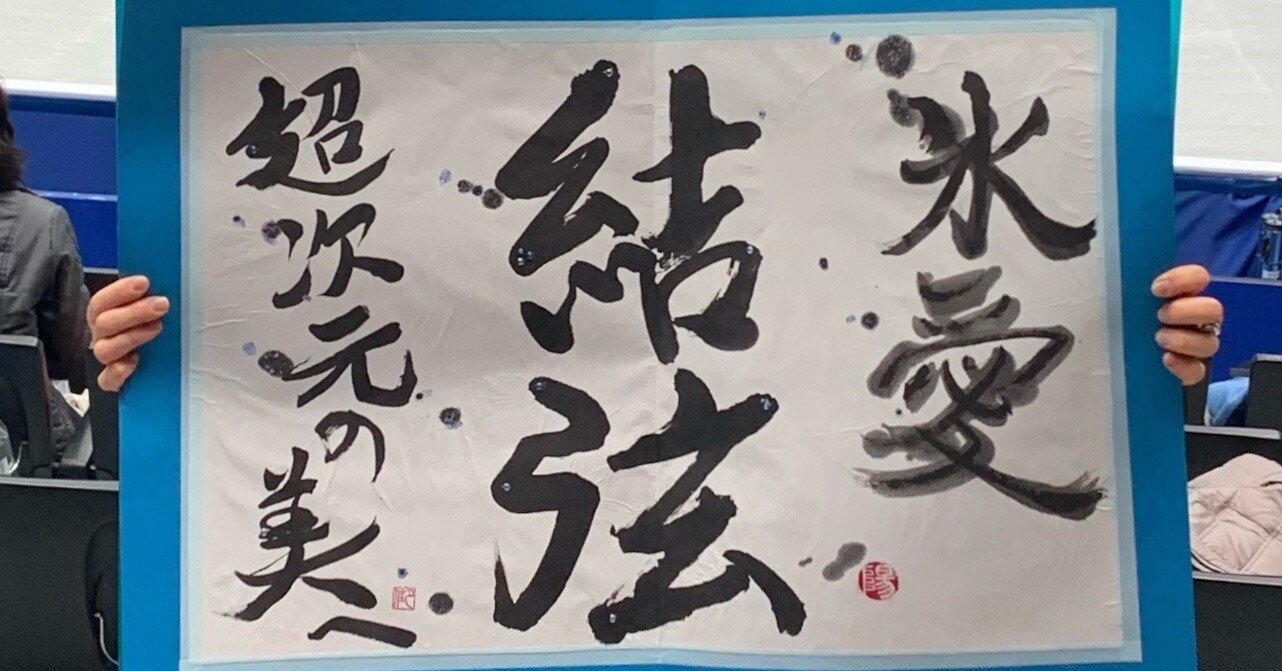 氷愛
結弦
超次元の美へ
陽